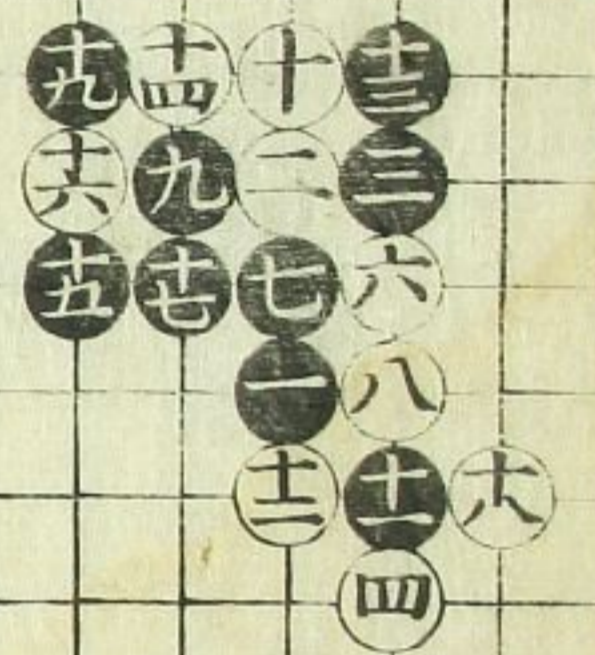 十九 十四 十 十三
十六 九 二 三
十五 十七 七 六
一 八
十二 十一 十八
四